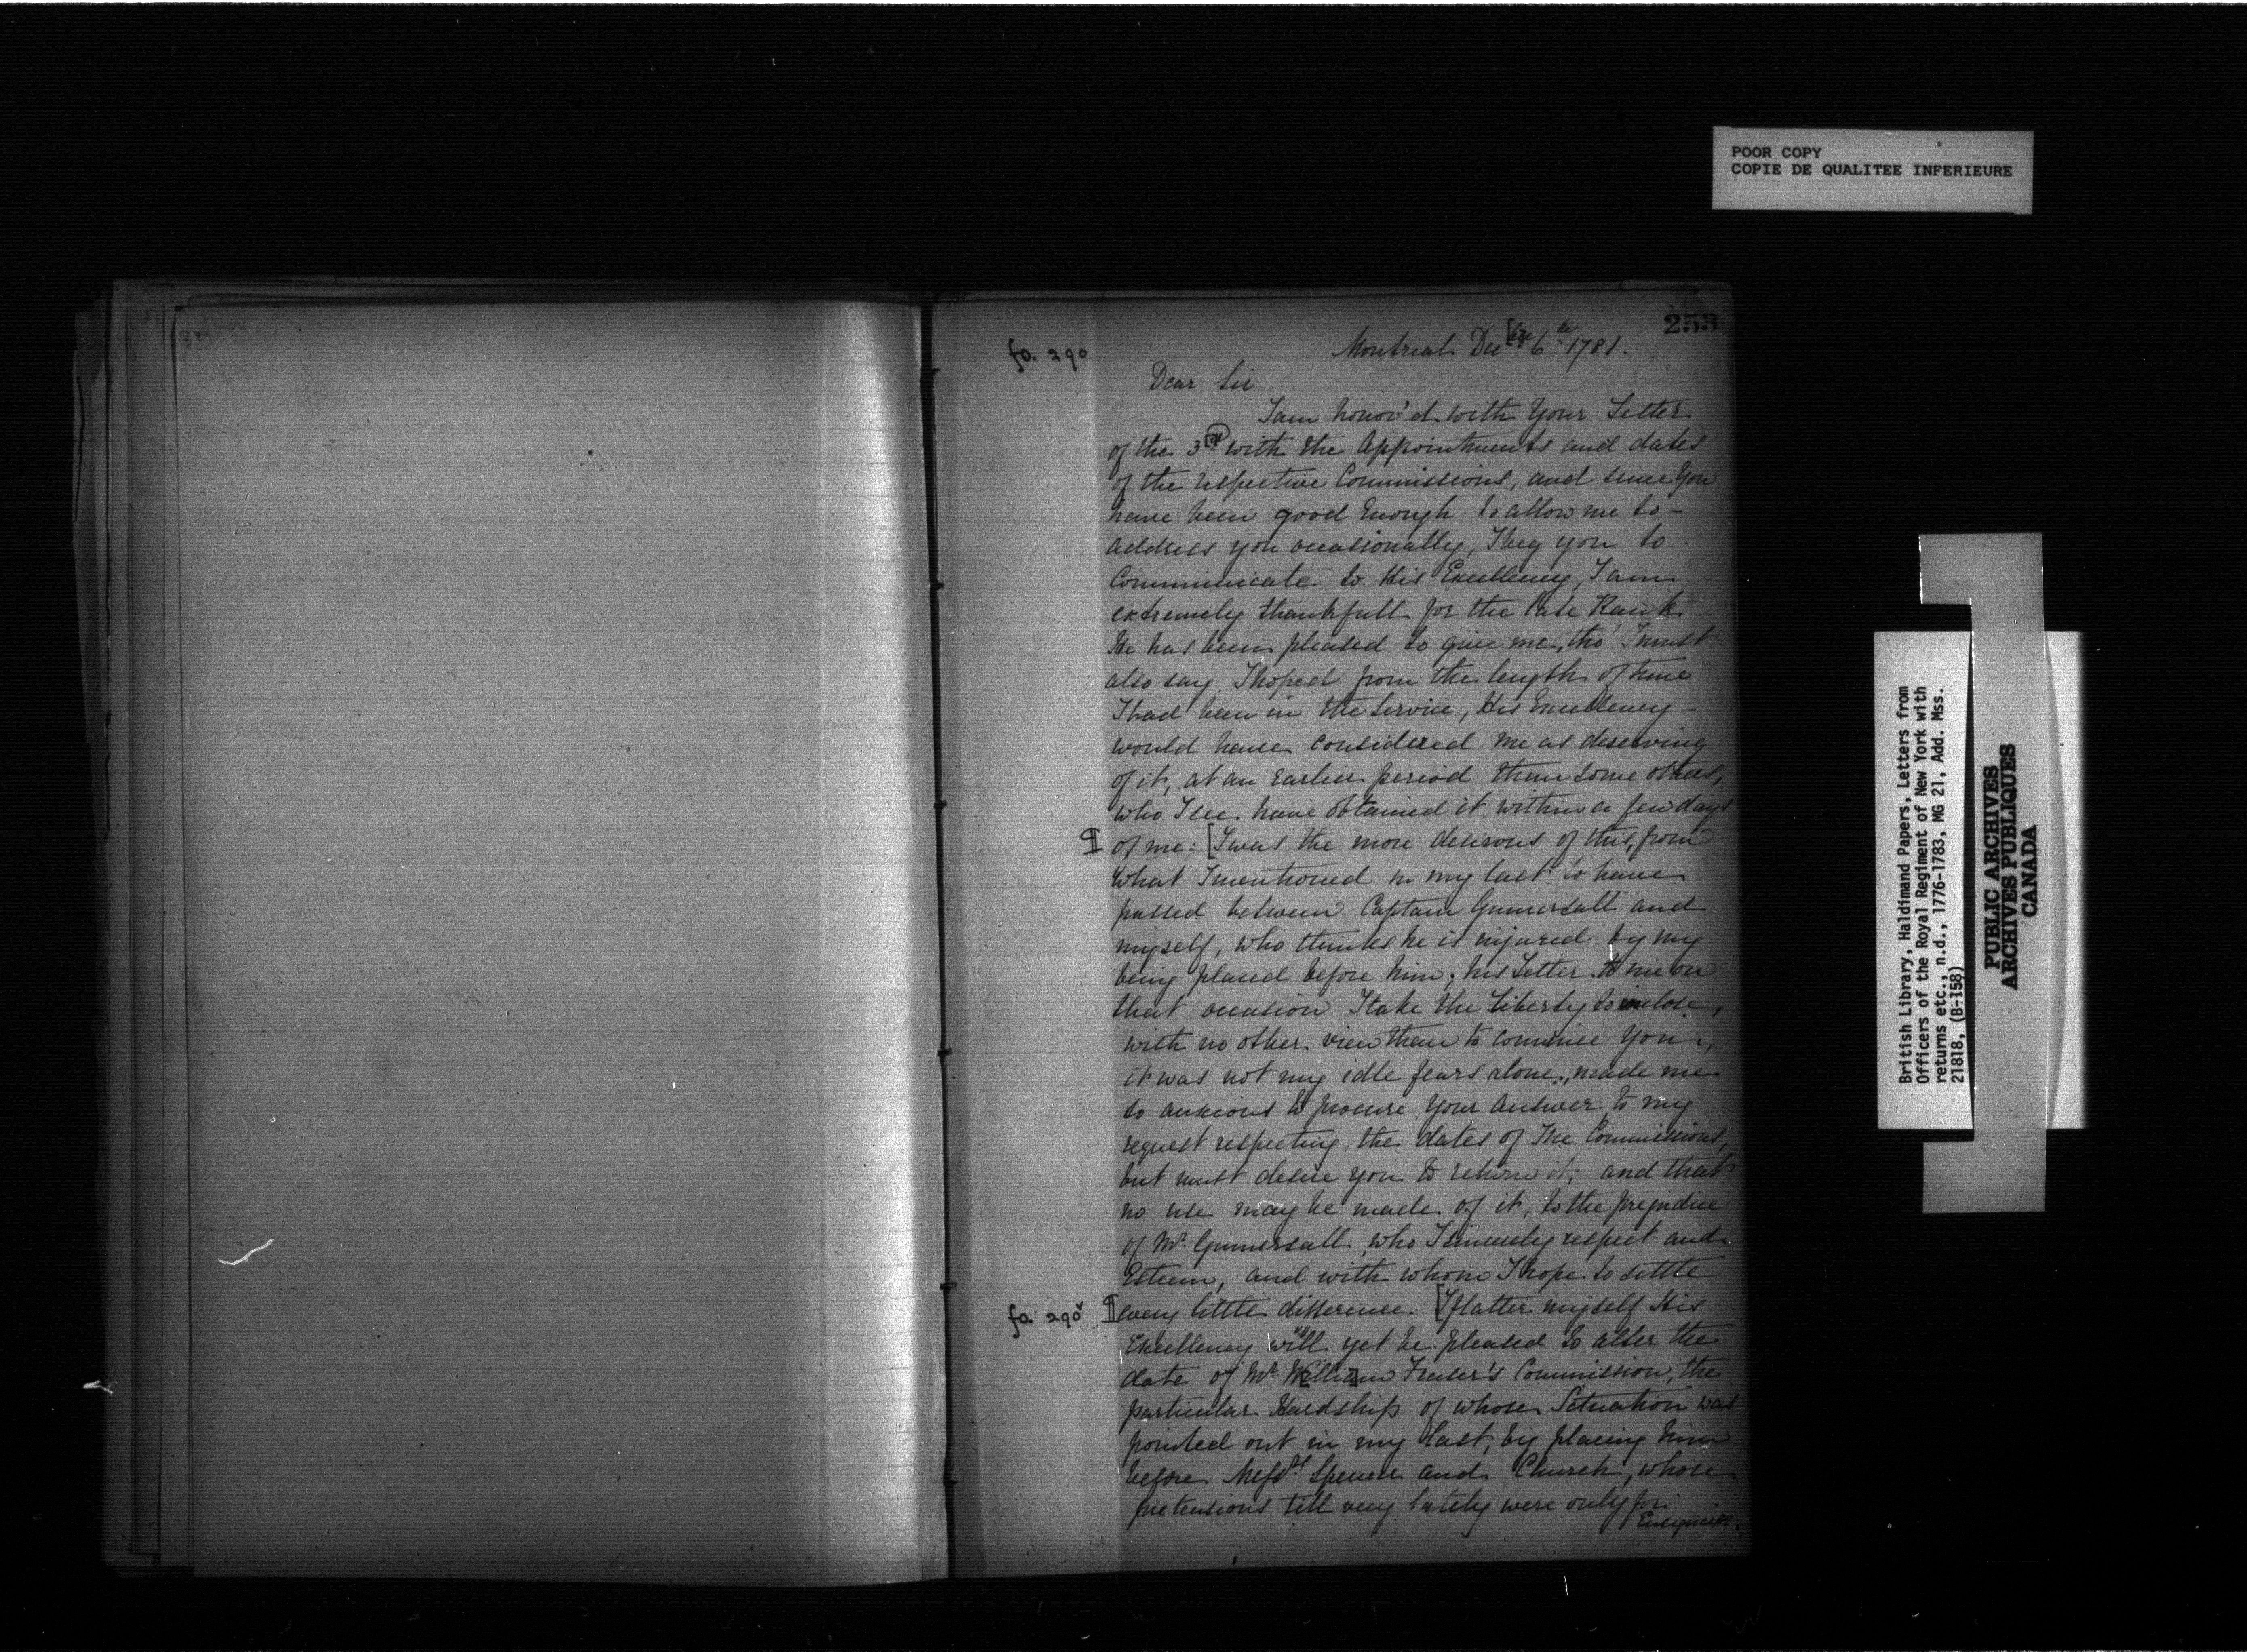 POOR COPY
COPIE DE QUALITEE INFERIEURE
253
fo. 290
Montreal Dec 6th 1781.
Dear Sir
I am honor'd with Your Letter
of the 3rd with the Appointments and dates
of the respective Commissions, and since You
have been good Enough to allow me to -
address you occasionally, I beg you to
Communicate to His Excellency, I am
extremely thankfull for the late Rank
He has been pleased to give me, tho' I must
also say, I hoped from the length of time
I had been in the Service, His Excellency -
would have considered me as deserving
of it, at an Earlier period than some others,
who I see have obtained it within a few days
¶ of me: [I was the more desirous of this, from
What I mentioned in my last to have
passed between Captain Gumersall and
myself, who thinks he is injured by my
being placed before him; his Letter to me on
that occasion I take the Liberty to inclose,
with no other view than to convince You,
it was not my idle fears alone, made me
so anxious to procure Your Answer to my
request respecting the dates of The Commissions,
but must desire you to return it; and that
no use may be made of it, to the prejudice
of Mr. Gumersall, who I sincerely respect and
Esteem, and with whom I hope to settle
fo. 290v ¶ every little difference. [I flatter myself His
Excellency will yet be pleased to alter the
date of Mr. William Fraser's Commission, the
particular Hardship of whose Situation was
pointed out in my last, by placing him
before Messrs. Spencer and Church, whose
pretensions till very lately were only for
Ensigncies.
British Library, Haldimand Papers, Letters from
Officers of the Royal Regiment of New York with
returns etc., n.d., 1776-1783, MG 21, Add. Mss.
21818, (B-158)
PUBLIC ARCHIVES
ARCHIVES PUBLIQUES
CANADA